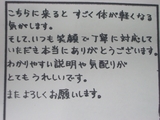 こちらに来ると すごく体が軽くなる
気がします。
そして、いつも笑顔で丁寧に対応して
いただき本当にありがとうございます。
わかりやすい説明や気配りが
とてもうれしいです。
またよろしくお願いします。